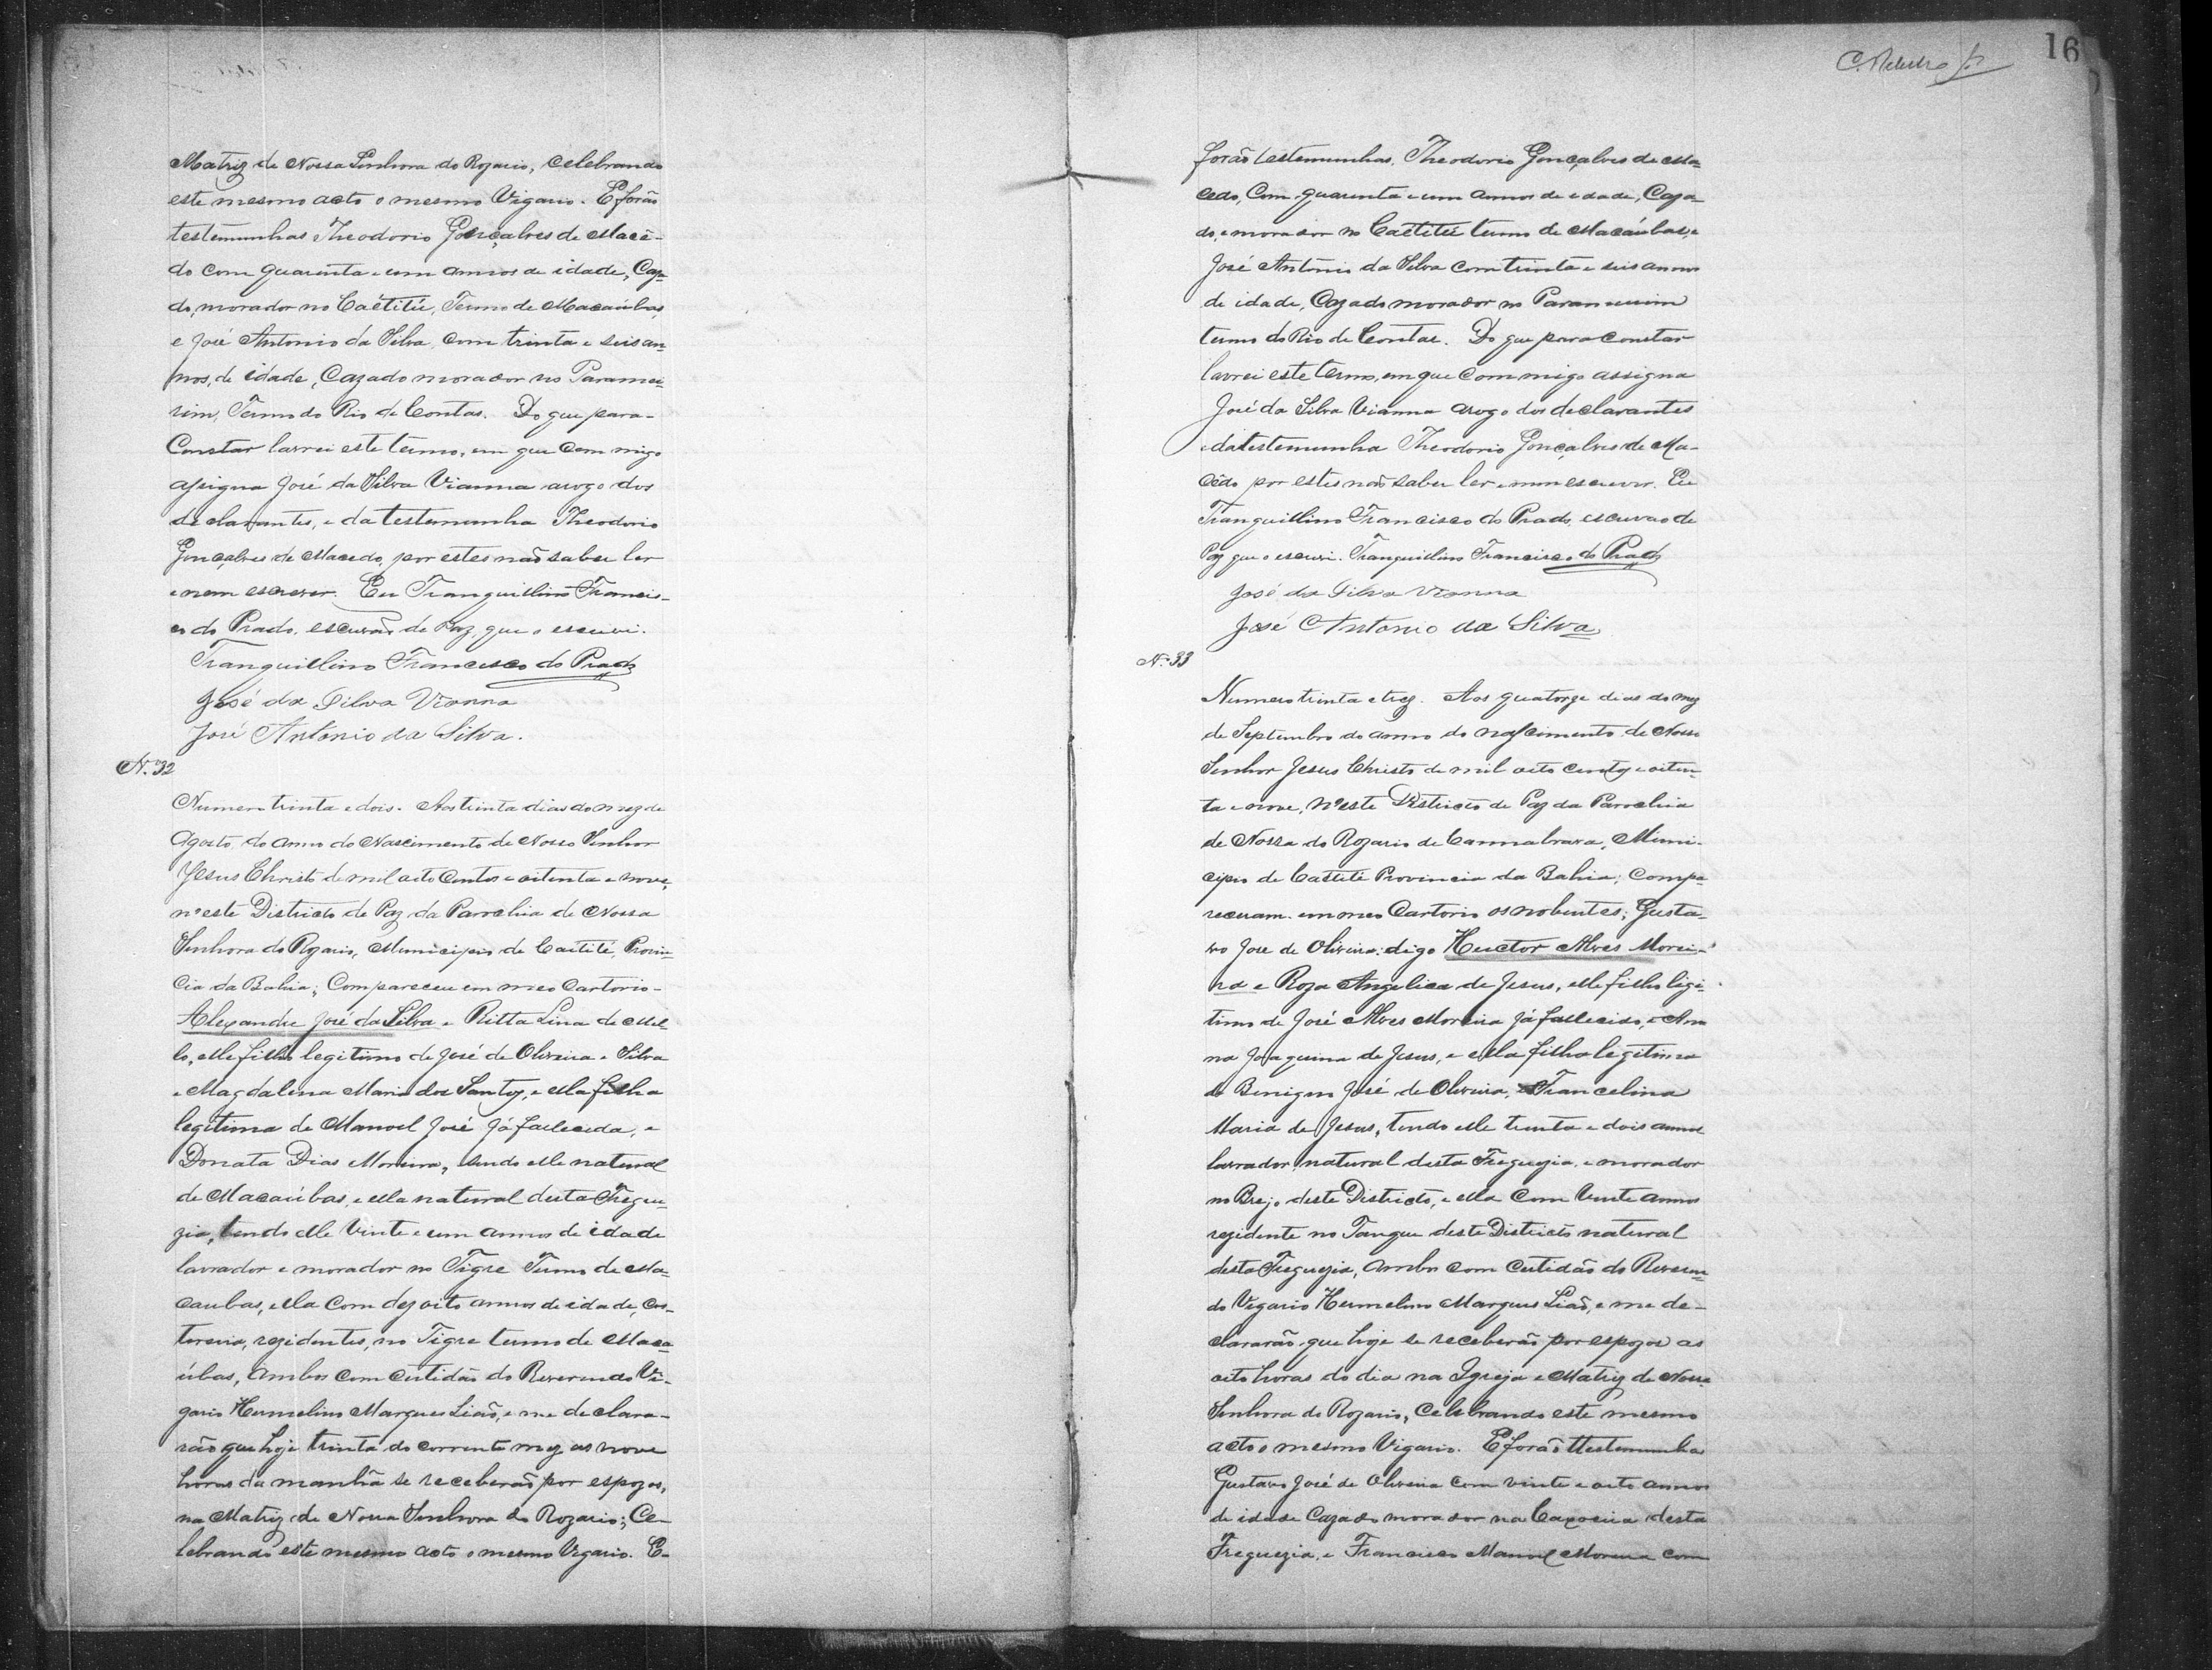 Matriz de Nossa Senhora do Rozario, celebrando
este mesmo acto o mesmo Vigario. E forão
testemunhas Theodorio Gonçalves de Macê-
do com quarenta e um annos de idade, Caza-
do, morador no Caêtitú, Termo de Macaúbas,
e José Antonio da Silva, com trinta e seis an-
nos, de idade, Cazado morador no Paramei-
rim, Termo do Rio de Contas. Do que para-
Constar lavrei este termo, em que com migo
assigna José da Silva Vianna arogo dos
declarantes, e da testemunha Theodorio
Gonçalves de Macedo, por estes não saber ler
e nem escrever. Eu Tranquillino Francis-
co do Prado, escrivão de Paz, que o escrivi.
Tranquillino Francisco do Prado
José da Silva Vianna
José Antonio da Silva.
N.º 32
Numero trinta e dois. Aos trinta dias do mez de
Agosto, do anno do Nascimento de Nosso Senhor
Jesus Christo de mil oito centos e oitenta e nove,
n'este Districto de Paz da Parochia de Nossa
Senhora do Rozario, Municipio de Caitité, Provin-
cia da Bahia; Compareceu em meo Cartorio-
Alexandre José da Silva e Ritta Lina de Mel-
lo, elle filho legitimo de José de Oliveira e Silva
e Magdalena Maria dos Santos, e ella filha
legitima de Manoel José já fallecida, e
Donata Dias Moreira, sendo elle natural
de Macaúbas, e ella natural desta Fregue-
zia, tendo elle vinte e um annos de idade
lavrador e morador no Tigre Termo de Ma-
caubas, ella com dezoito annos de idade, cos-
tureira, rezidentes, no Tigre termo de Maca-
úbas, ambos com certidão do Reverendo Vi-
gario Hermelino Marques Leão, e me declara-
rão que hoje trinta do corrente mez as nove
horas da manhã se receberão por espozos,
na Matriz de Nossa Senhora do Rozario; Ce-
lebrando este mesmo acto o mesmo Vigario. E-
16
forão testemunhas. Theodorio Gonçalves de Ma-
cedo, Com quarenta e um annos de idade, Caza-
do, e morador no Caêtitú termo de Macaúbas, e
José Antonio da Silva com trinta e seis annos
de idade, Cazado morador no Parameirim
termo do Rio de Contas. Do que para constar
lavrei este termo, em que commigo assigna
José da Silva Vianna arogo dos declarantes
e da testemunha Theodorio Gonçalves de Ma-
cêdo por estes não saber ler e nem escrever. Eu
Tranquillino Francisco do Prado, escrivão de
Paz que o escrivi. Tranquillino Francisco do Prado
José da Silva Vianna
José Antonio da Silva
N.º 33
Numero trinta e trez. Aos quatorze dias do mez
de Septembro do anno do nascimento de Nosso
Senhor Jesus Christo de mil oito centos e oiten-
ta e nove, n'este Districto de Paz da Parochia
de Nossa do Rozario de Cannabrava, Muni-
cipio de Caitité Provincia da Bahia; Compa-
receram em meo Cartorio os nobentes; Gusta-
vo José de Oliveira: digo Heuctor Alves Morei-
ra e Roza Angelica de Jesus, elle filho legi-
timo de José Alves Moreira já fallecido, e An-
na Joaquina de Jesus, e ella filha legitima
de Benigno José de Oliveira, e Francelina
Maria de Jesus, tendo elle trinta e dois annos
lavrador, natural desta Freguezia, e morador
no Brejo deste Districto, e ella com vinte annos
rezidente no Tanque deste Districto natural
desta Freguezia, ambos com certidão do Reveren-
do Vigario Hermelino Marques Leão, e me de-
clararão que hoje se receberão por espozos as
oito horas do dia na Igreja e Matriz de Nossa
Senhora do Rozario, Celebrando este mesmo
acto o mesmo Vigario. E forão testemunhas
Gustavo José de Oliveira com vinte e oito annos
de idade Cazado morador na Caxoeira desta
Freguezia, e Francisco Manoel Moreira com